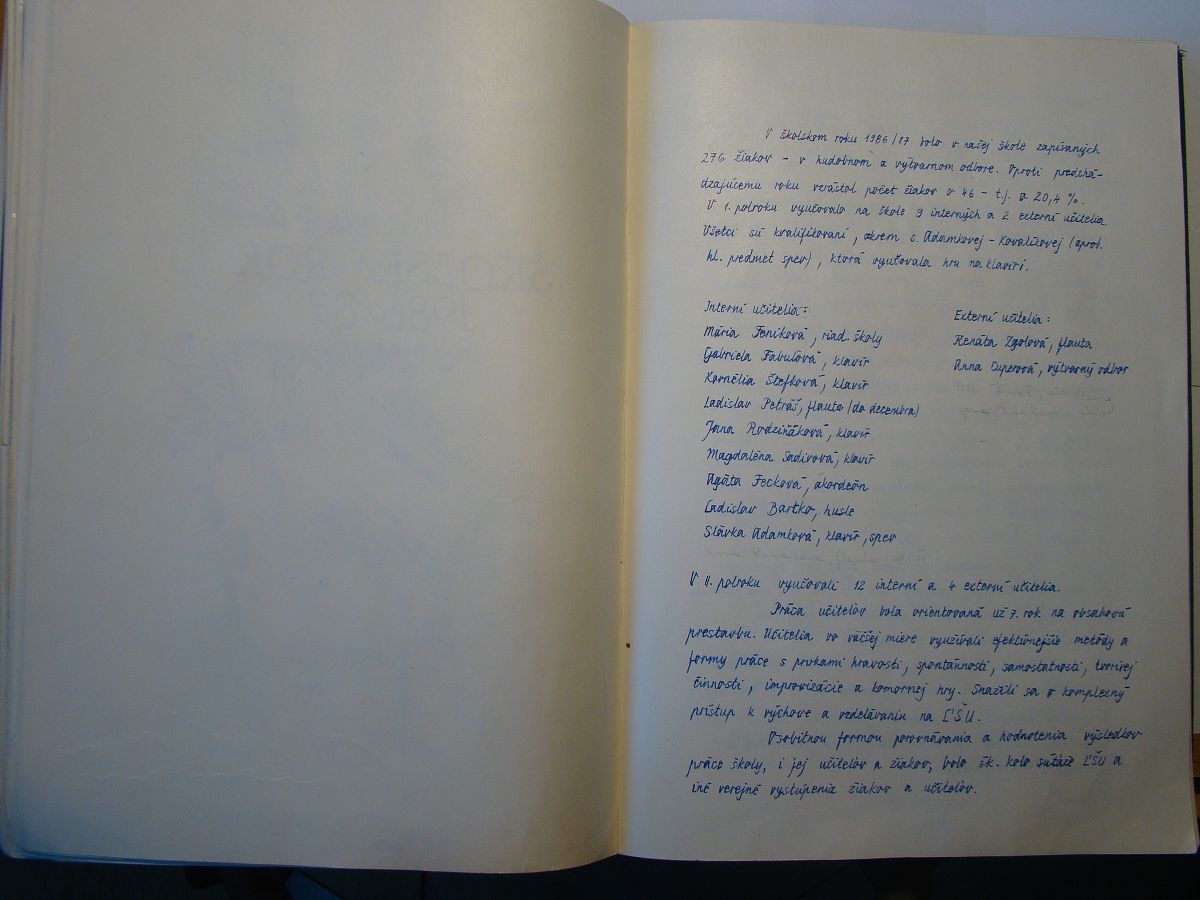 V školskom roku 1986/87 bolo v našej škole zapísaných
276 žiakov - v hudobnom a výtvarnom odbore. Oproti predchá-
dzajúcemu roku vzrástol počet žiakov o 46 - t.j. o 20,4 %.
V 1. polroku vyučovalo na škole 9 interných a 2 externí učitelia.
Všetci sú kvalifikovaní, okrem s. Adamkovej - Kovalíkovej (aprob.
hl. predmet spev), ktorá vyučovala hru na klavíri.
Interní učitelia:
Mária Feníková, riad. školy
Gabriela Fabulová, klavír
Kornélia Štefková, klavír
Ladislav Petráš, flauta (do decembra)
Jana Rodziňáková, klavír
Magdaléna Sadivová, klavír
Agáta Fecková, akordeón
Ladislav Bartko, husle
Slávka Adamková, klavír, spev
Externí učitelia:
Renáta Zgolová, flauta
Anna Cuperová, výtvarný odbor
V II. polroku vyučovali 12 interní a 4 externí učitelia.
Práca učiteľov bola orientovaná už 7. rok na obsahovú
prestavbu. Učitelia vo väčšej miere využívali efektívnejšie metódy a
formy práce s prvkami hravosti, spontánnosti, samostatnosti, tvorivej
činnosti, improvizácie a komornej hry. Snažili sa o komplexný
prístup k výchove a vzdelávaniu na ĽŠU.
Osobitnou formou porovnávania a hodnotenia výsledkov
práce školy, i jej učiteľov a žiakov, bolo šk. kolo súťaže ĽŠU a
iné verejné vystúpenia žiakov a učiteľov.